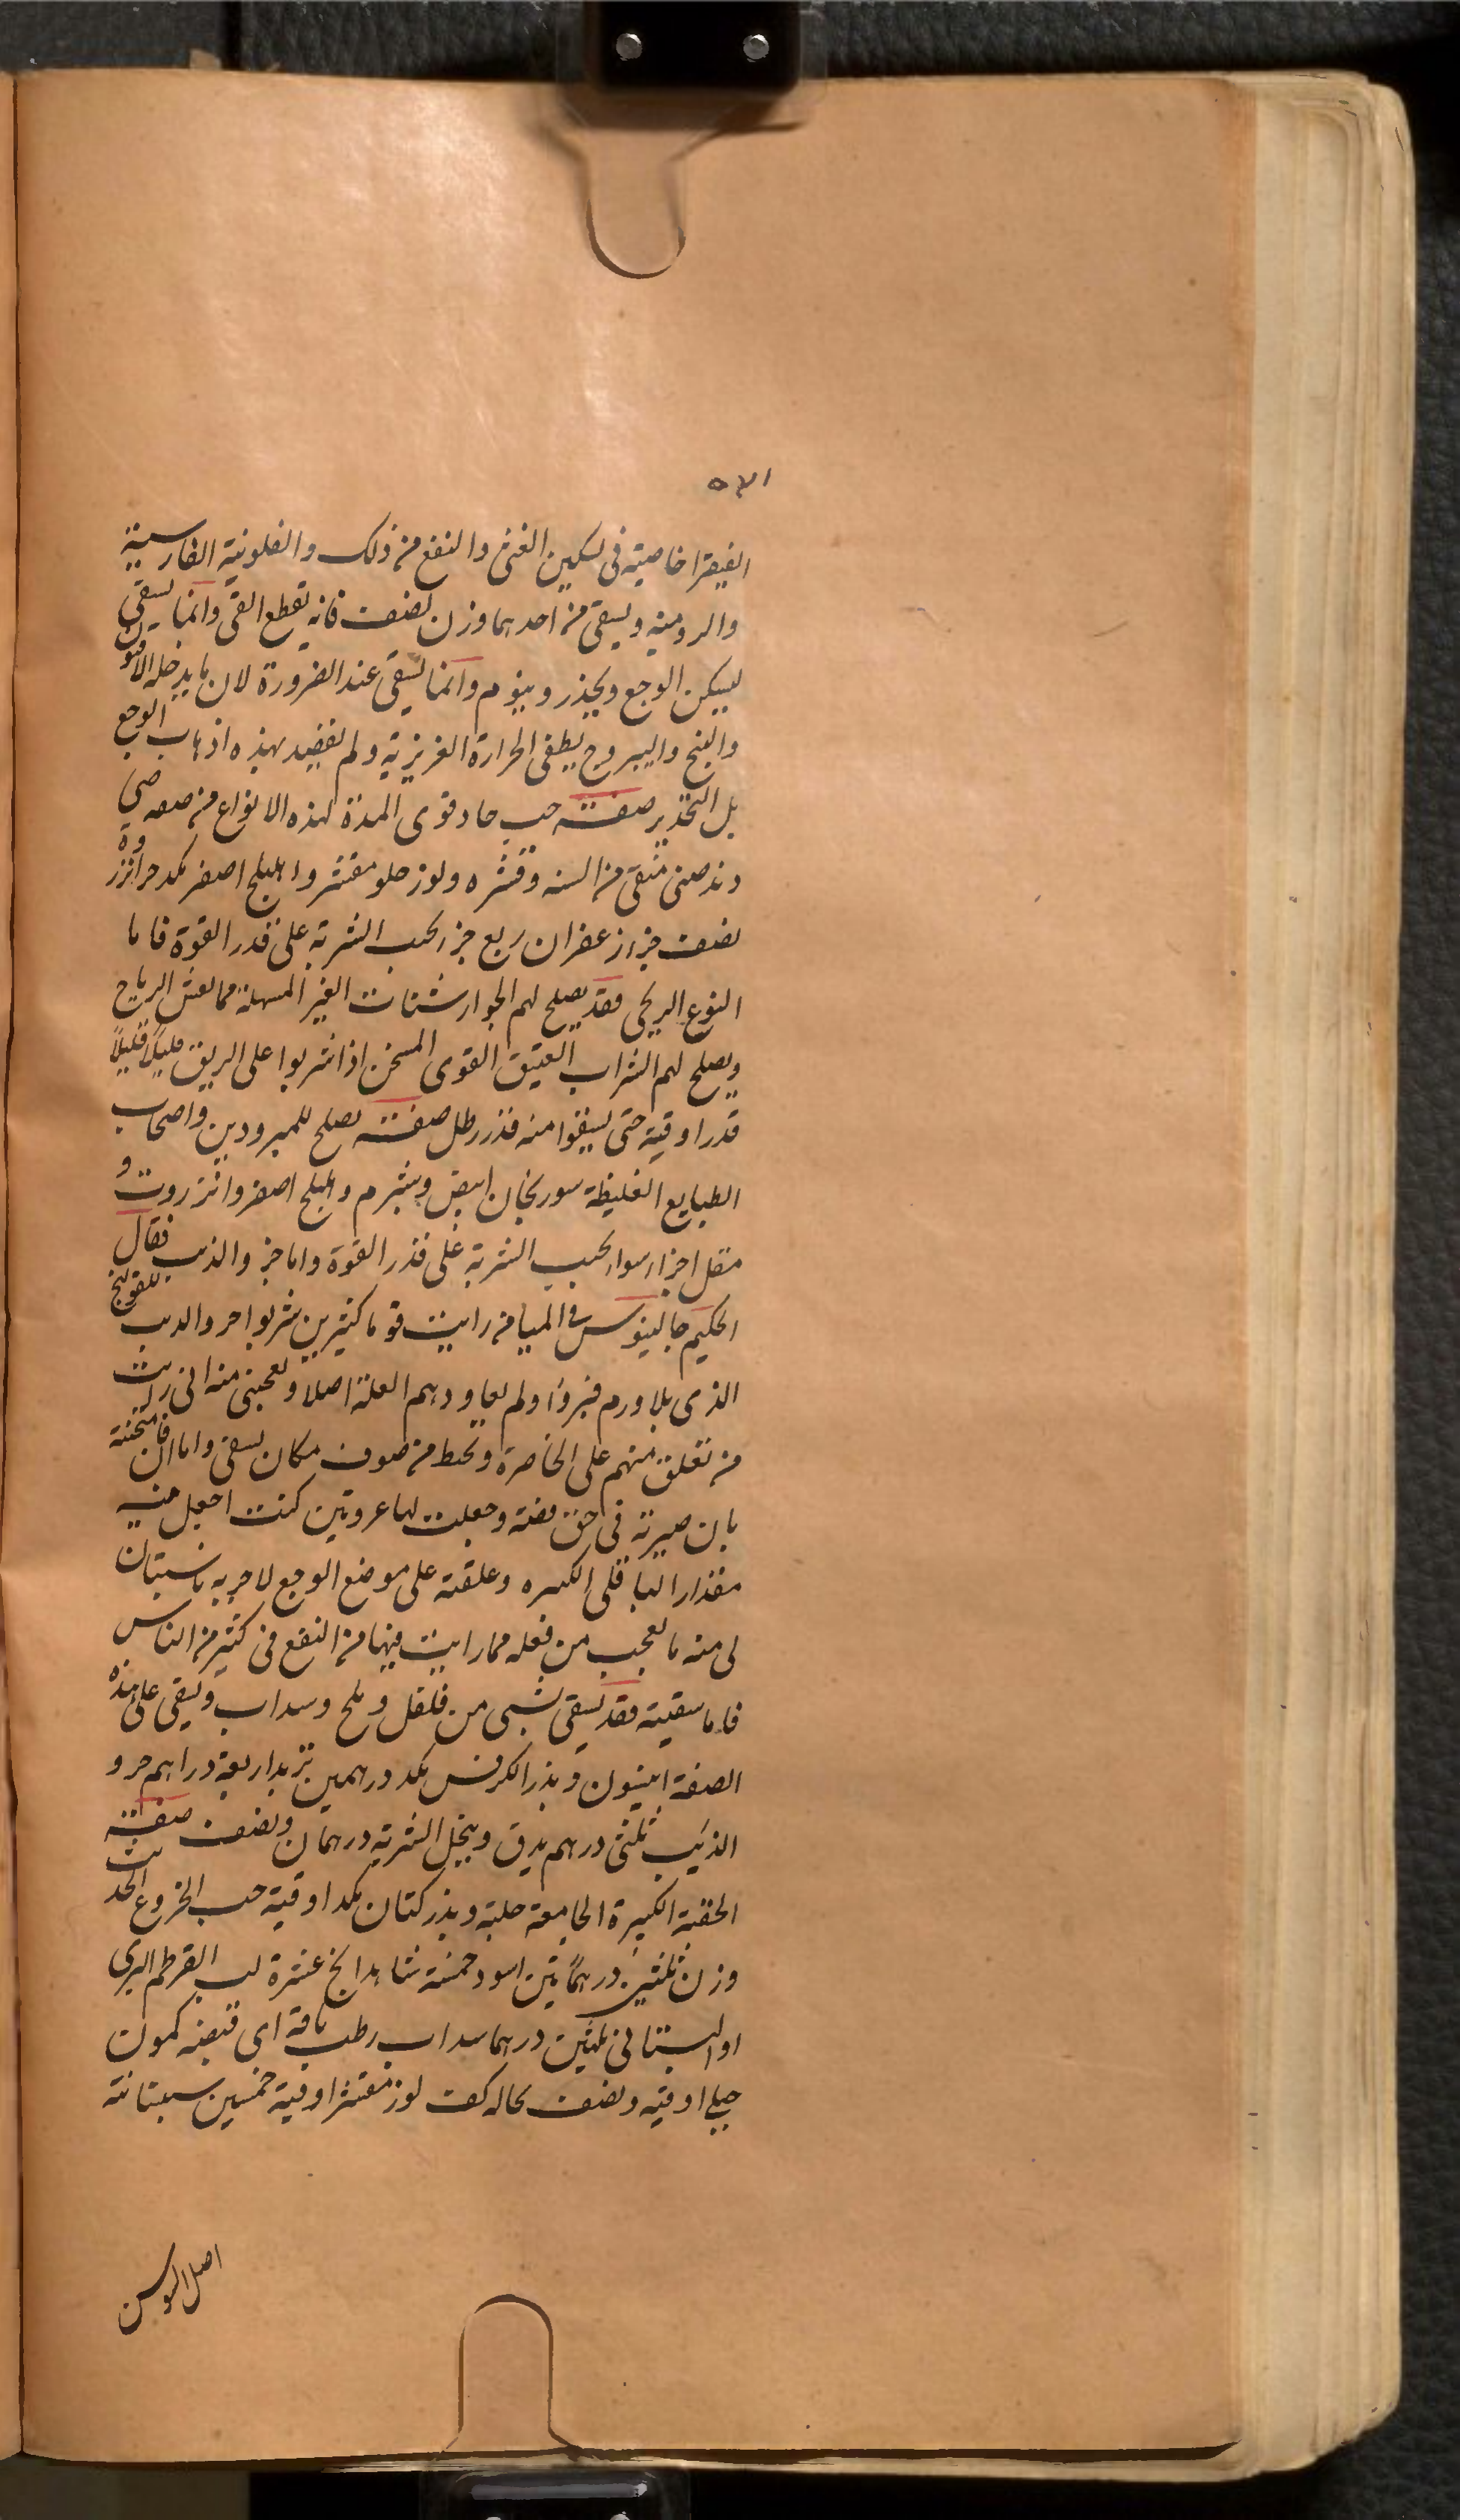 ٥٣١
الفيقرا خاصيته فى تسكين الغثى والنفع من ذلك والفلونية الفارسية
والرومية ويسقى من احدهما وزن نصف فانه يقطع القى وانما يسقى
ليسكن الوجع ويخدر وينوم وانما يسقى عند الضرورة لان ما يدخله الافيون
والبنج واليبروح يطفى الحرارة الغريزية ولم نقصد بهذه اذهاب الوجع
بل التخدير صفته حب حاد قوى المدة لهذه الانواع من
منقى من السنه وقشره ولوز حلو مقشر واهليلج اصفر مكد جزا
نصف جزا زعفران ربع جز يحبب الشربة على قدر القوة فاما
النوع الريحى فقد يصلح لهم الجوارشنات الغير المسهلة مما يفش الرياح
ويصلح لهم الشراب العتيق القوى المسخن اذا شربوا على الريق قليلاً قليلاً
قدر اوقية حتى يسقوا منه قدر رطل صفته يصلح للمبرودين واصحاب
الطبايع الغليظة سورنجان ابيض وشبرم واهليلج اصفر وانزروت و
مقل اجزا سوا يحبب الشربة على قدر القوة واما خر والذيب فقال
الحكيم جالينوس فى الميامر رايت قوما كثيرين شربوا خر والديب للقولنج
الذى بلا ورم فبروا ولم يعاودهم العلة اصلا ويعجبنى منه انى رايت
من تعلق منهم على الخاصرة ونحيط من صوف مكان يسقى واما ان فامتحنته
بان صيرته فى حق فضة وجعلت لها عروتين كنت اجعل فيه
مقدار الباقلى الكبيره وعلقته على موضع الوجع لاجربه فاستبان
لى منه ما تعجب من فعله مما رايت فيها من النفع فى كثير من الناس
فاما سقيته فقد يسقى بشى من فلفل وملح وسداب ويسقى على هذه
الصفة انيسون وبذر الكرفس مكد درهمين تزبد اربعة دراهم خر و
الذئب ثلثى درهم يدق وينخل الشربة درهمان ونصف صفته
الحقنة الكبيرة الجامعة حلبة وبذر كتان مكد اوقية حب الخروع الحديث
وزن ثلثين درهمًا تين اسود خمسة شاهدانج عشرة لب القرطم البرى
او البستانى ثلثين درهما سداب رطب باقة اى قبضه كمون
جبلى اوقية ونصف نخاله كف لوز مقشر اوقية خمسين سبستانة
اصل السوسن